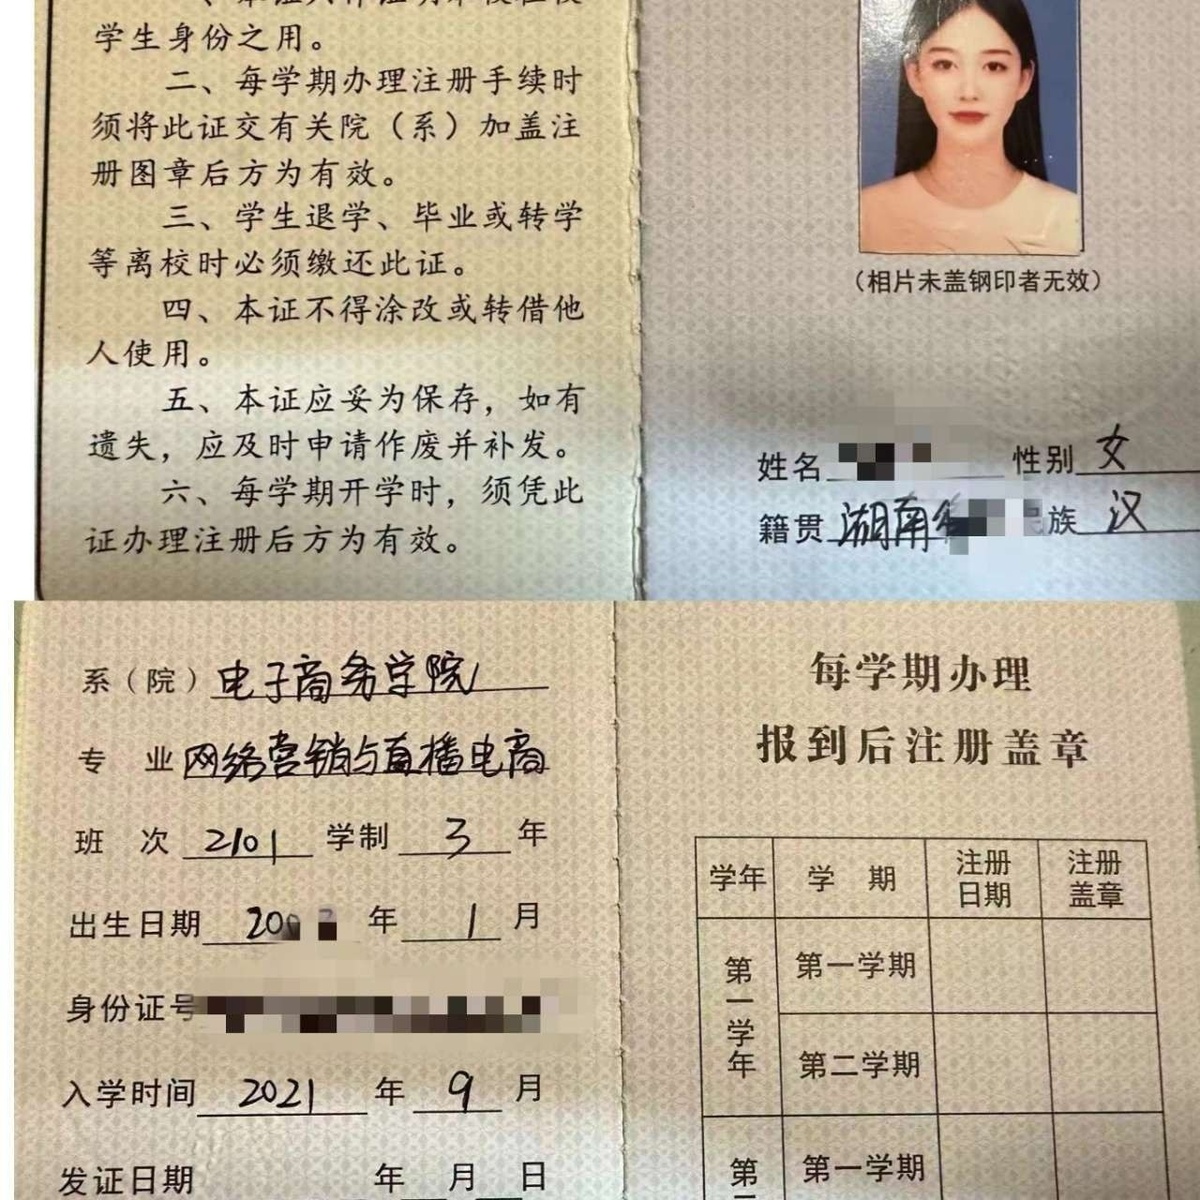 学生身份之用。
二、每学期办理注册手续时
须将此证交有关院（系）加盖注
册图章后方为有效。
三、学生退学、毕业或转学
等离校时必须缴还此证。
四、本证不得涂改或转借他
人使用。
五、本证应妥为保存，如有
遗失，应及时申请作废并补发。
六、每学期开学时，须凭此
证办理注册后方为有效。
（相片未盖钢印者无效）
姓名 性别 女
籍贯 湖南省 族 汉
系（院） 电子商务学院
专 业 网络营销与直播电商
班 次 2101 学制 3 年
出生日期 20 年 1 月
身份证号
入学时间 2021 年 9 月
发证日期 年 月 日
每学期办理
报到后注册盖章
学年 学 期 注册日期 注册盖章
第一学年 第一学期
第二学期
第 第一学期